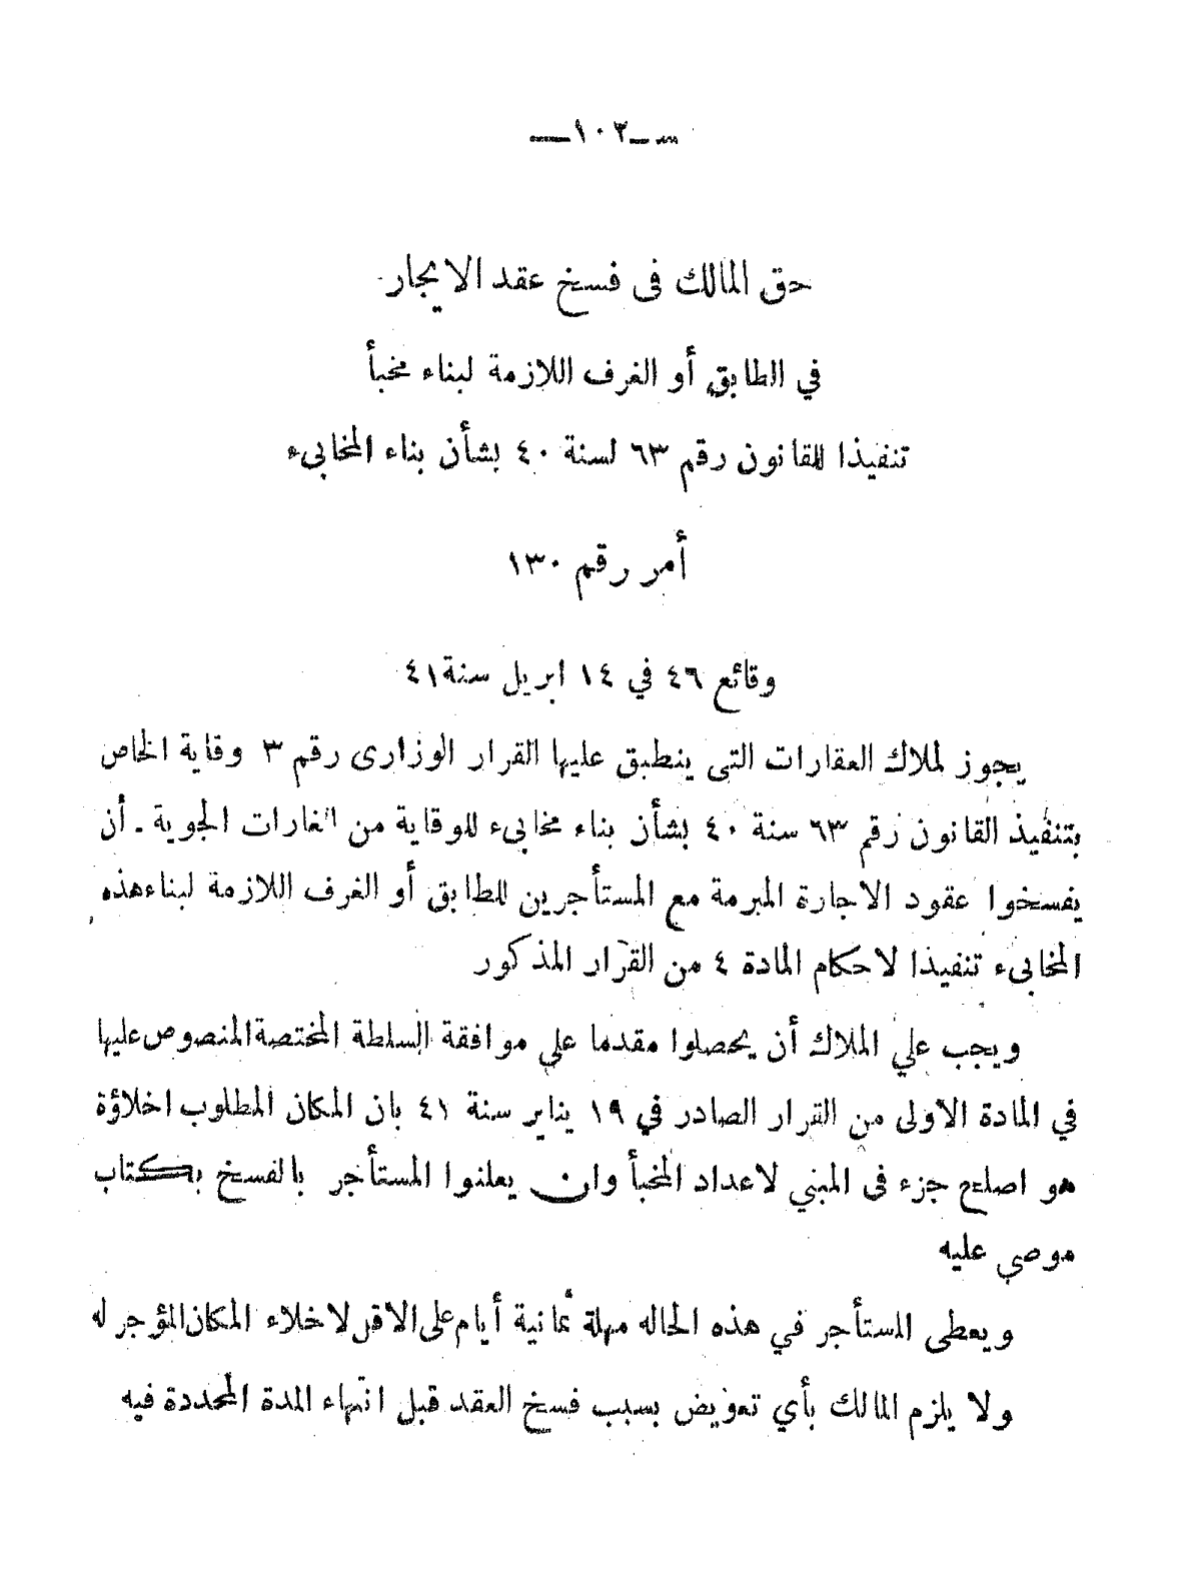 —١٠٣—
حق المالك فى فسخ عقد الايجار
في الطابق أو الغرف اللازمة لبناء مخبأ
تنفيذا للقانون رقم ٦٣ لسنة ٤٠ بشأن بناء المخابىء
أمر رقم ١٣٠
وقائع ٤٦ في ١٤ ابريل سنة ٤١
يجوز لملاك العقارات التى ينطبق عليها القرار الوزارى رقم ٣ وقاية الخاص
بتنفيذ القانون رقم ٦٣ سنة ٤٠ بشأن بناء مخابىء للوقاية من الغارات الجوية ـ أن
يفسخوا عقود الاجارة المبرمة مع المستأجرين للطابق أو الغرف اللازمة لبناء هذه
المخابىء تنفيذا لاحكام المادة ٤ من القرار المذكور
ويجب علي الملاك أن يحصلوا مقدما على موافقة السلطة المختصة المنصوص عليها
في المادة الاولى من القرار الصادر في ١٩ يناير سنة ٤١ بان المكان المطلوب اخلاؤة
هو اصلح جزء فى المبني لاعداد المخبأ وان يعلنوا المستأجر بالفسخ بكتاب
موصي عليه
ويعطى المستأجر في هذه الحاله مهلة ثمانية أيام على الاقل لاخلاء المكان المؤجر له
ولا يلزم المالك بأي تعويض بسبب فسخ العقد قبل انتهاء المدة المحددة فيه